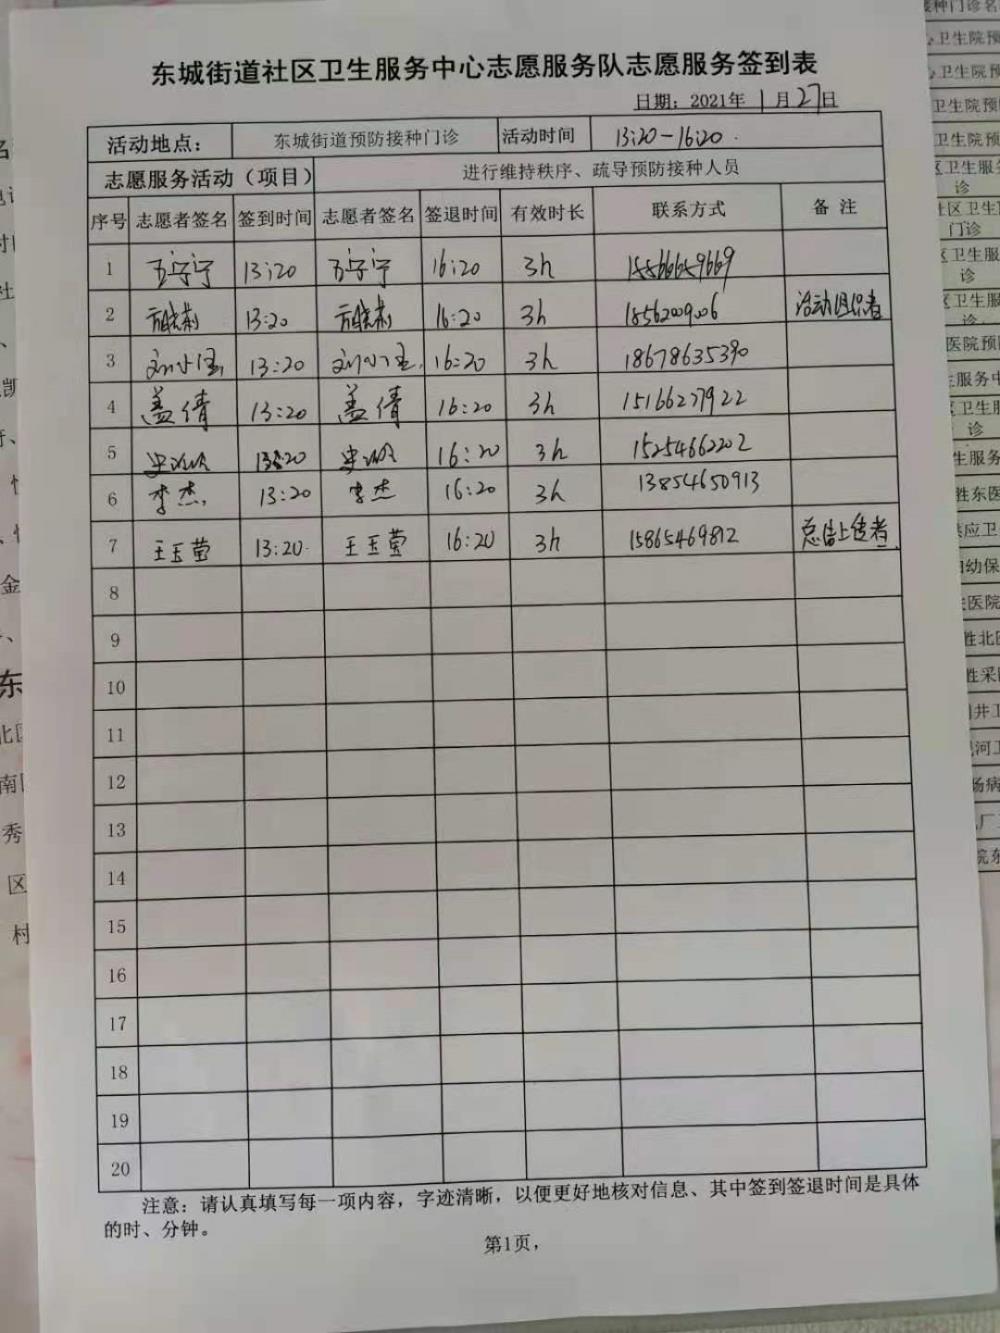 东城街道社区卫生服务中心志愿服务队志愿服务签到表
日期：2021年 1 月 27日
活动地点： 东城街道预防接种门诊 活动时间 13:20-16:20
志愿服务活动（项目） 进行维持秩序、疏导预防接种人员
序号 志愿者签名 签到时间 志愿者签名 签退时间 有效时长 联系方式 备 注
1 13:20 16:20 3h 15566659669
2 13:20 16:20 3h 18562009006 活动组织者
3 13:20 16:20 3h 18678635390
4 盖倩 13:20 盖倩 16:20 3h 15166227922
5 13:20 16:20 3h 15254662202
6 李杰 13:20 李杰 16:20 3h 13854650913
7 王玉莹 13:20 王玉莹 16:20 3h 15865469812 总结上传者
8
9
10
11
12
13
14
15
16
17
18
19
20
注意：请认真填写每一项内容，字迹清晰，以便更好地核对信息、其中签到签退时间是具体
的时、分钟。
第1页，